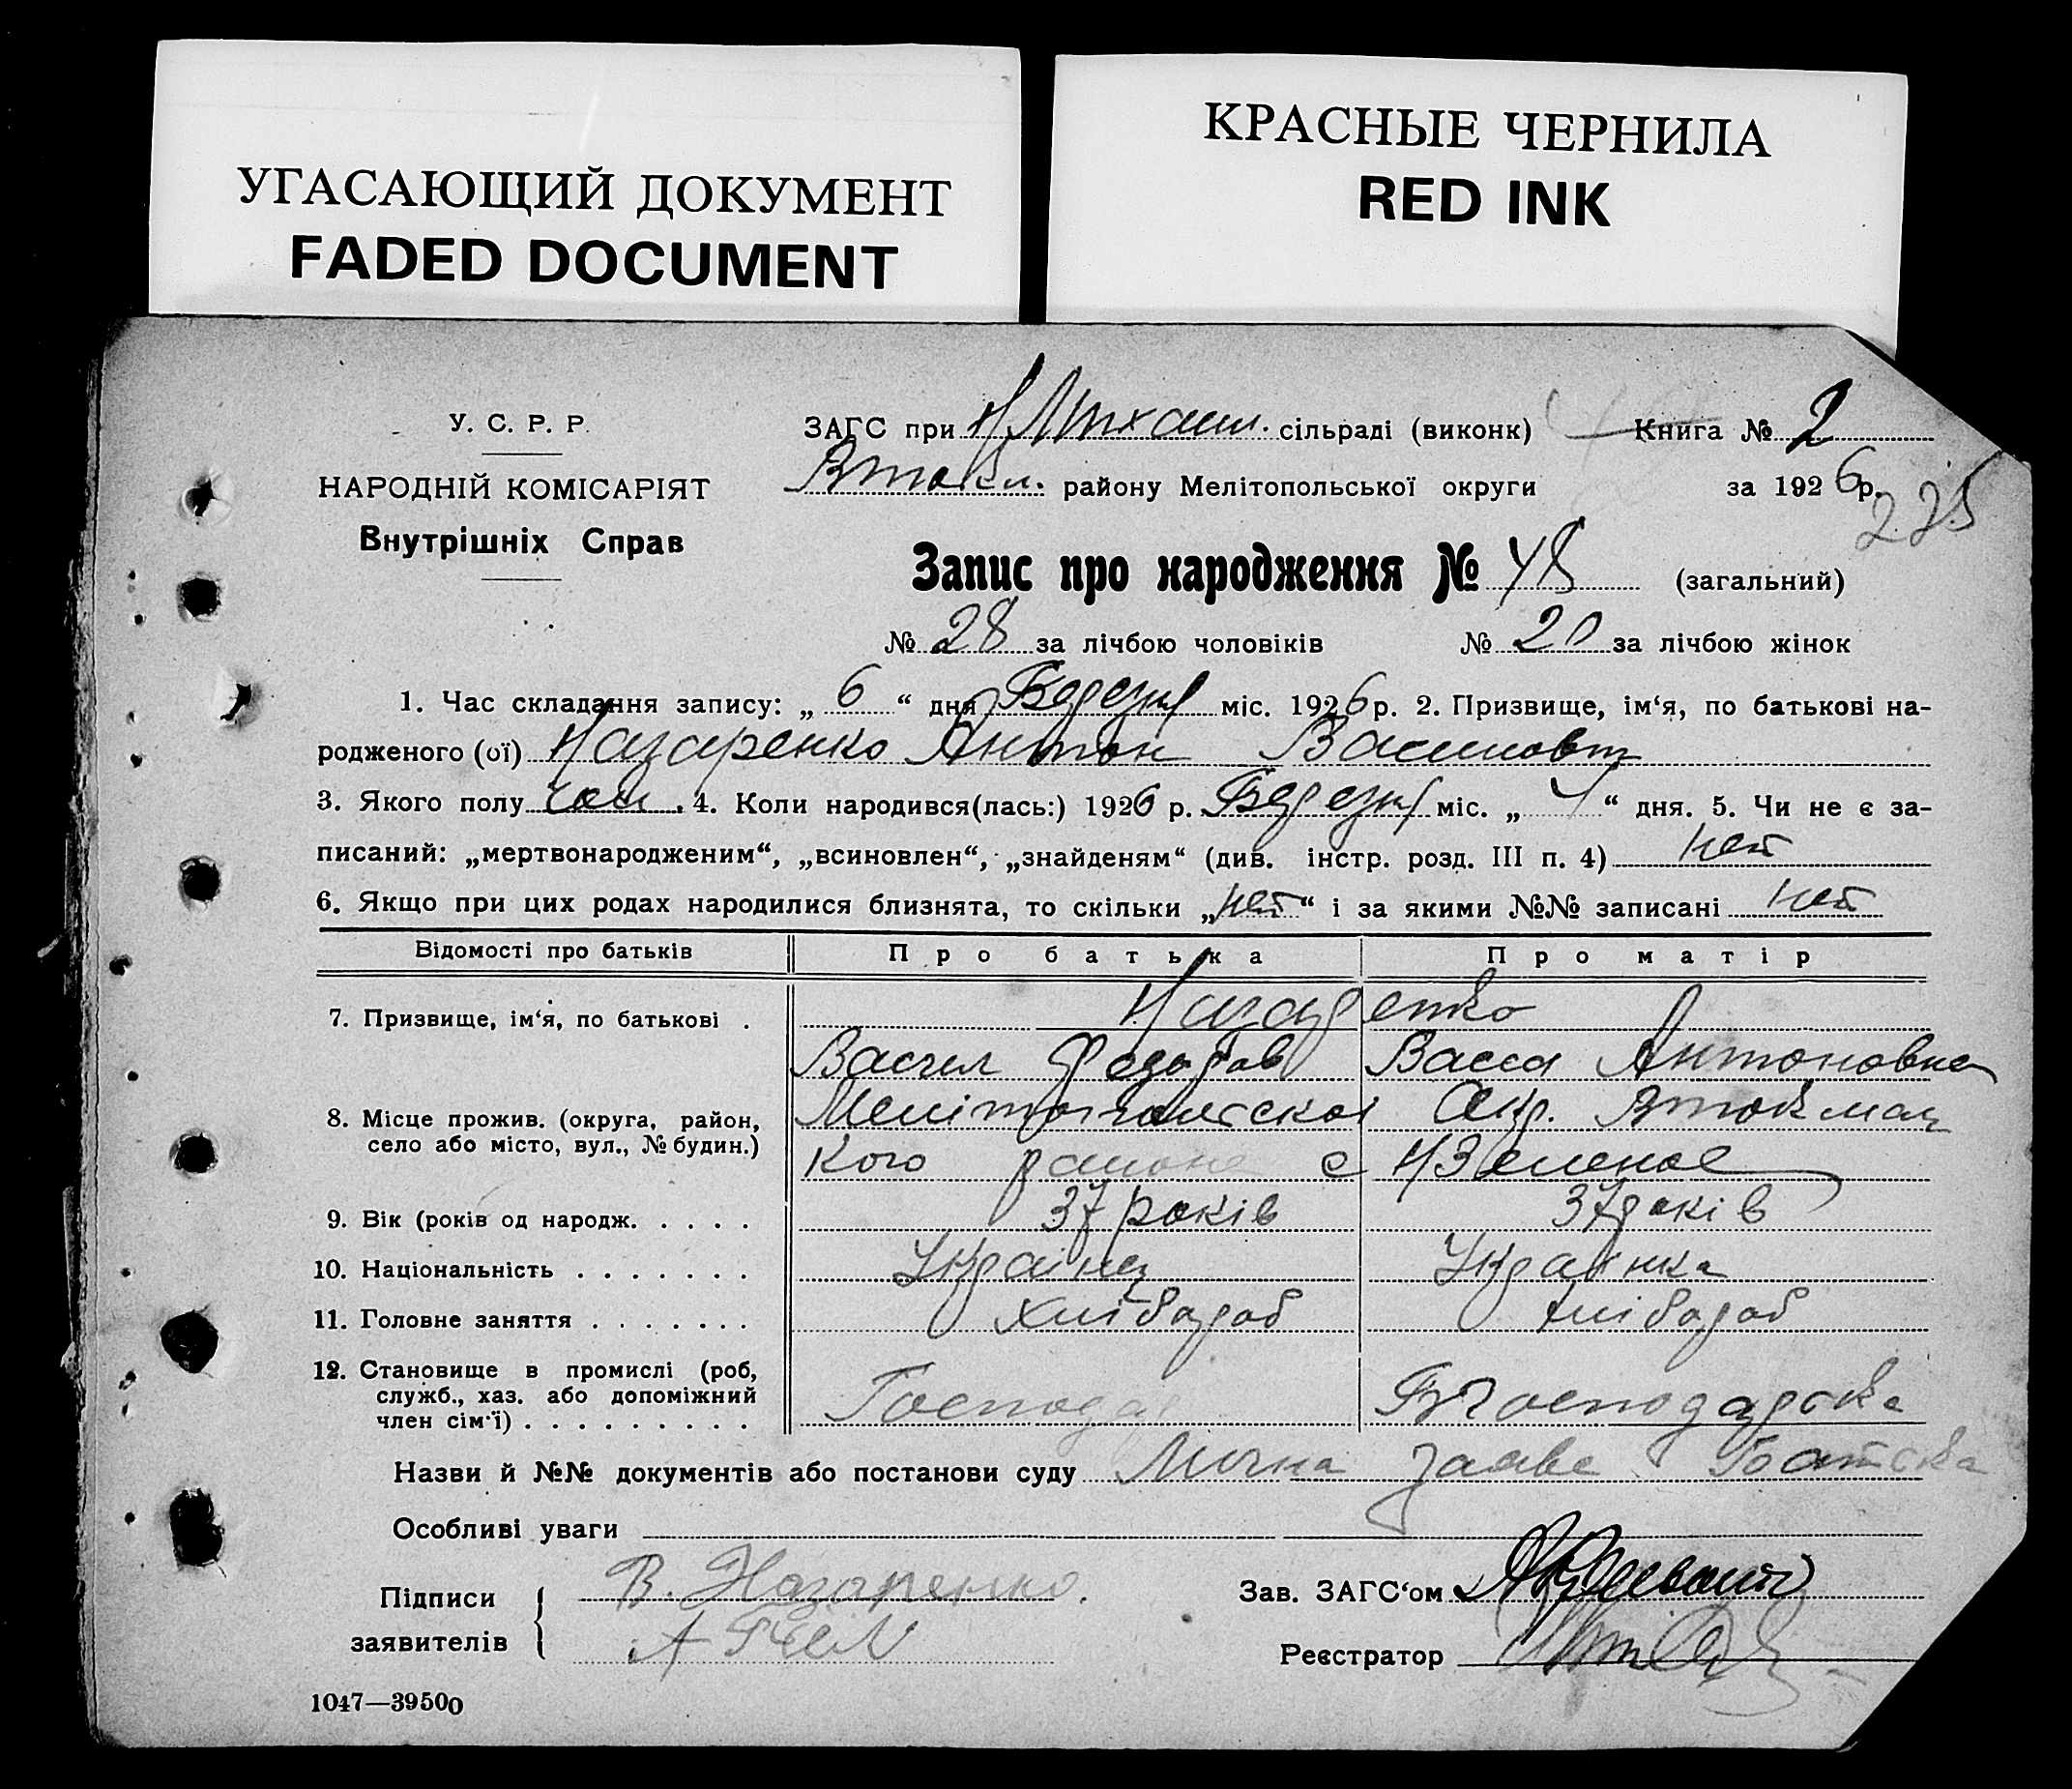 УГАСАЮЩИЙ ДОКУМЕНТ
FADED DOCUMENT
КРАСНЫЕ ЧЕРНИЛА
RED INK
У. С. Р. Р.
НАРОДНІЙ КОМІСАРІЯТ
Внутрішніх Справ
ЗАГС при Н Михайл. сільраді (виконк) Книга № 2
Втокм. району Мелітопольської округи за 1926 р.
225
Запис про народження № 48 (загальний)
№ 28 за лічбою чоловіків № 20 за лічбою жінок
1. Час складання запису: „ 6 “ дня Березня міс. 1926 р. 2. Призвище, ім‘я, по батькові на-
родженого (ої) Назаренко Антон
3. Якого полу чол. 4. Коли народився(лась:) 1926 р. Березня міс. „ 4 “ дня. 5. Чи не є за-
писаний: „мертвонародженим“, „всиновлен“, „знайденям“ (див. інстр. розд. III п. 4) нет
6. Якщо при цих родах народилися близнята, то скільки „нет“ і за якими №№ записані нет
Відомості про батьків Про батька Про матір
7. Призвище, ім‘я, по батькові . Назаренко
Васил Федоров Васса Антоновна
8. Місце прожив. (округа, район, село або місто, вул., № будин.) Мелітопольскої Окр. Втокмац
кого району с Н/Зеленое
9. Вік (років од народж. . . . . 37 років 37 років
10. Національність . . . . . . . Українец Українка
11. Головне заняття . . . . . . . хлібороб хлібороб
12. Становище в промислі (роб,
служб., хаз. або допоміжний
член сім‘ї) . . . . . . . . . Господар господарська
Назви й №№ документів або постанови суду заява
Особливі уваги
Підписи
заявителів
В. Назаренко
Зав. ЗАГС‘ом
Реєстратор
1047—39500